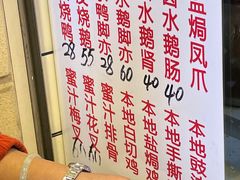 烧鸭 28
烧鹅 55
鸭脚亦 28
鹅脚亦 60
水鹅肾 40
水鹅肠 40
盐焗凤爪
蜜汁梅叉
蜜汁花叉
蜜汁排骨
本地白切鸡
本地盐焗鸡
本地手撕
本地豉